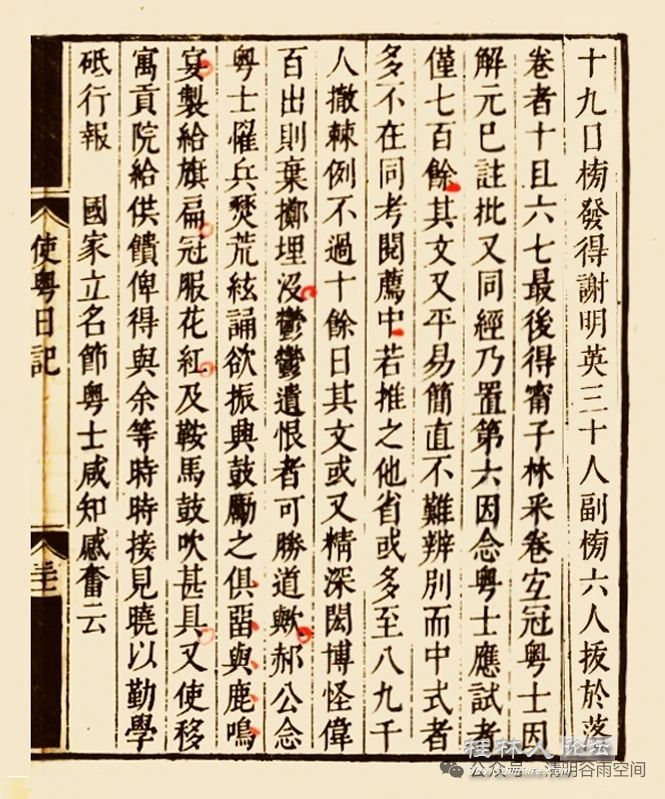 十九日榜發得謝明英三十人副榜六人拔於落
卷者十且六七最後得甯子林釆卷宜冠粤士因
解元巳註批又同經乃置第六因念粤士應試者
僅七百餘其文又平易簡直不難辨別而中式者
多不在同考閱薦中若推之他省或多至八九千
人撤棘例不過十餘日其文或又精深閎博怪偉
百出則棄擲埋沒鬱鬱遺恨者可勝道歟郝公念
粤士罹兵燹荒絃誦欲振興鼓勵之俱畱與鹿鳴
宴製給旗扁冠服花紅及鞍馬鼓吹甚具又使移
寓貢院給供饋俾得與余等時時接見曉以勤學
砥行報 國家立名節粤士咸知感奮云
使粤日記
桂林人论坛
公众号 · 清明谷雨空间